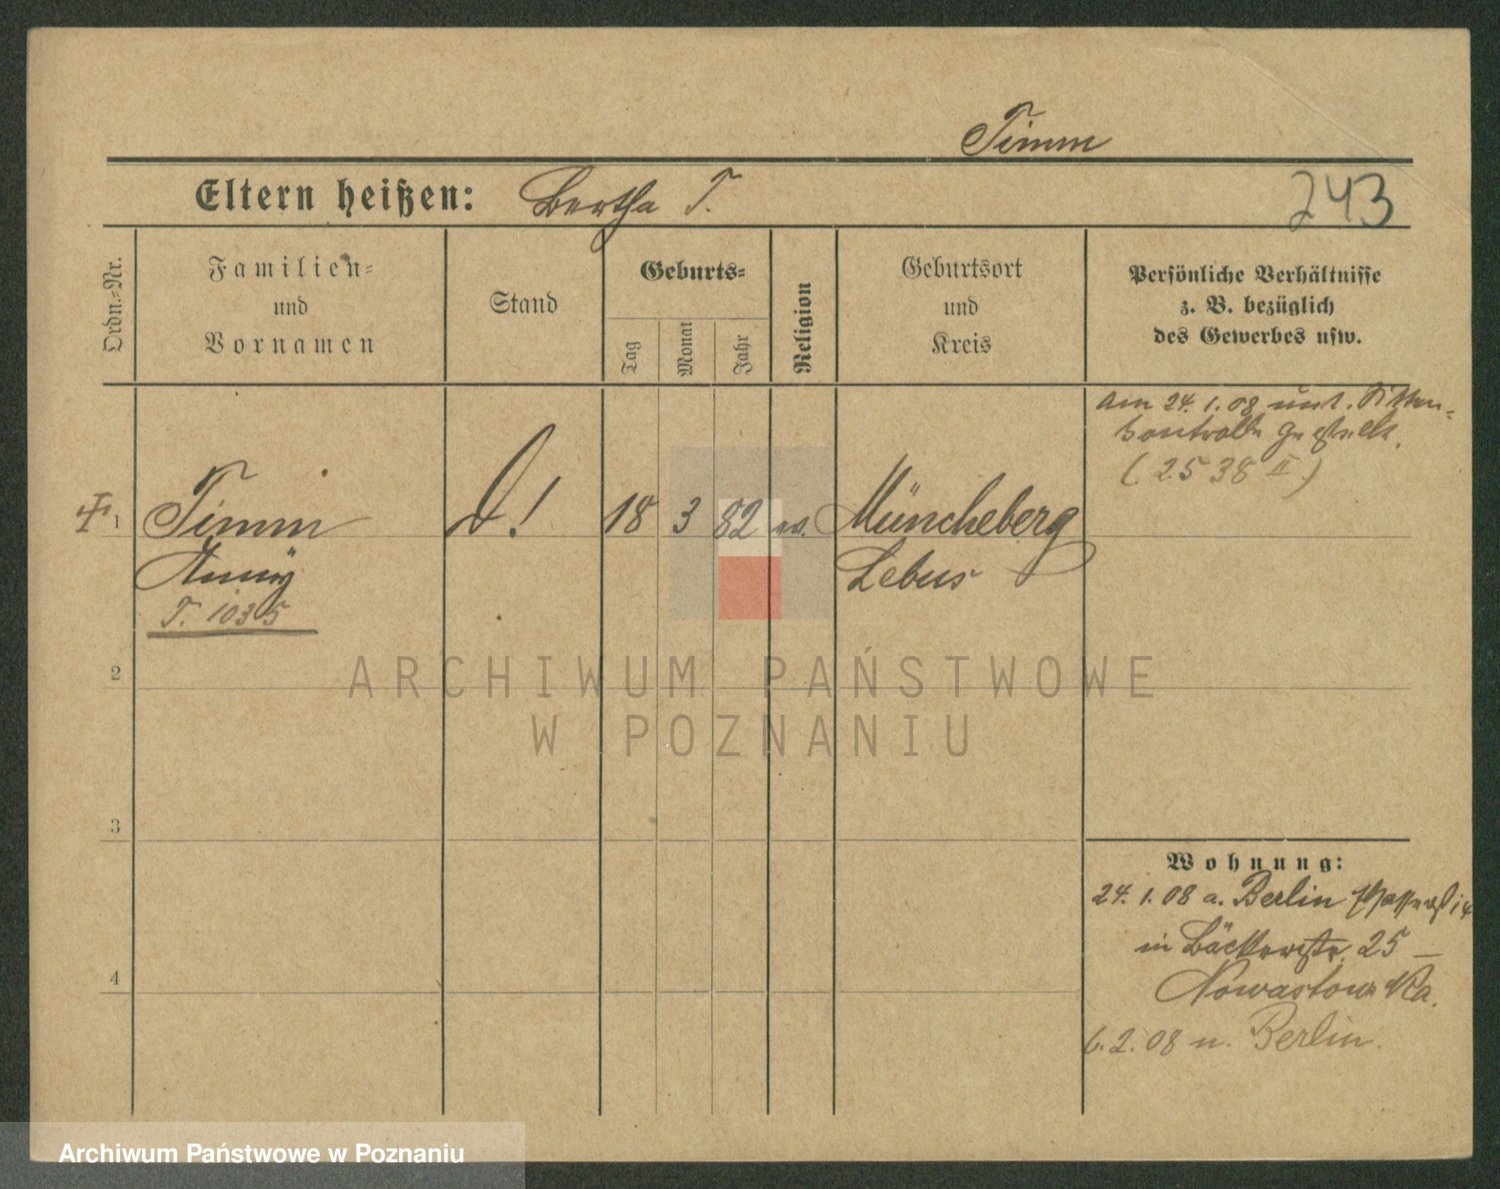 Timm
Eltern heißen: Bertha T.
243
Ordn.-Nr.
Familien-
und
Vornamen
Stand
Geburts-
Tag
Monat
Jahr
Religion
Geburtsort
und
Kreis
Persönliche Verhältnisse
z. B. bezüglich
des Gewerbes usw.
am 24. 1. 08 unt. Sitten-
kontrolle gestellt.
(2538 II)
1 Timm 18 3 82 ev. Müncheberg
Anny Lebus
T. 1035
2
3
4
Wohnung:
24. 1. 08 a. Berlin
in Bäckerstr. 25 –
6. 2. 08 n. Berlin.
ARCHIWUM PAŃSTWOWE
W POZNANIU
Archiwum Państwowe w Poznaniu